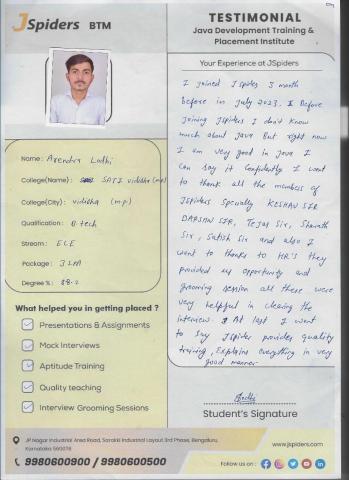 JSpiders BTM
TESTIMONIAL
Java Development Training &
Placement Institute
Your Experience at JSpiders
I joined JSpides 3 month
before in July 2023. I Before
joining JSpiders I don't know
much about Java But right now
I am very good in Java I
can say it confidently I want
to thank all the members of
JSpiders specially KESHAV SIR
DARSHAN SIR, Tejas Sir, Sharath
Sir, Satish Sir and also I
want to thanks to HR's they
provided us opportunity and
grooming session all these were
very helpful in clearing the
interview. At last I want
to say JSpider provides quality
training, Explains everything in very
good manner
Student's Signature
Name: Lodhi
College(Name): SATI vidisha (m.p)
College(City): vidisha (m.p)
Qualification: B.tech
Stream:
Package:
Degree %: 88.2
What helped you in getting placed ?
Presentations & Assignments
Mock Interviews
Aptitude Training
Quality teaching
Interview Grooming Sessions
JP Nagar Industrial Area Road, Sarakki Industrial Layout 3rd Phase, Bengaluru,
Karnataka 560078
9980600900 / 9980600500
www.jspiders.com
Follow us on :